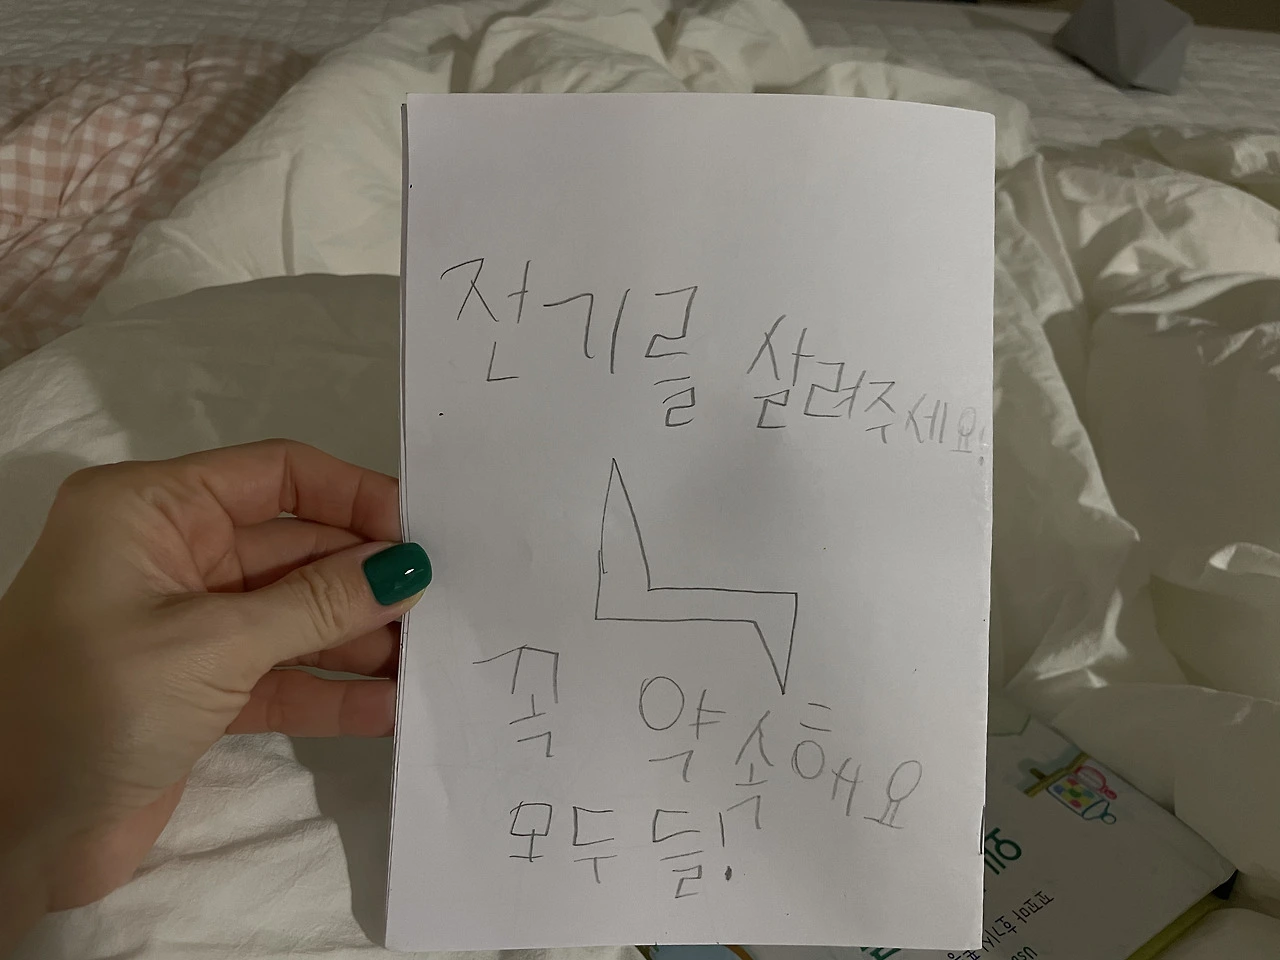 전기를 살려주세요!
꼭 약속해요
모두들!